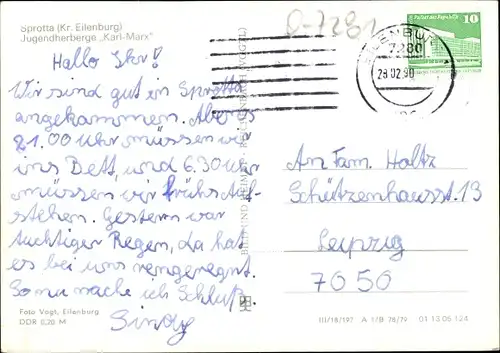 Sprotta (Kr. Eilenburg)
Jugendherberge „Karl-Marx"
Hallo Ihr!
Wir sind gut in Sprotta
angekommen. Abends
21.00 Uhr müssen wir
ins Bett, und 6.30 Uhr
müssen wir frühs Auf-
stehen. Gestern war
tuchtiger Regen, da hat
es bei uns reingeregnet.
So nu mache ich Schluß.
Sindy
Foto Vogt, Eilenburg
DDR 0,20 M
BILD UND HEIMAT REICHENBACH (VOGTL)
EILENBURG
7280
28.02.90
10
An Fam. Holtz
Schützenhausst. 13
Leipzig
7050
III/18/197 A 1/B 78/79 01 13 05 124